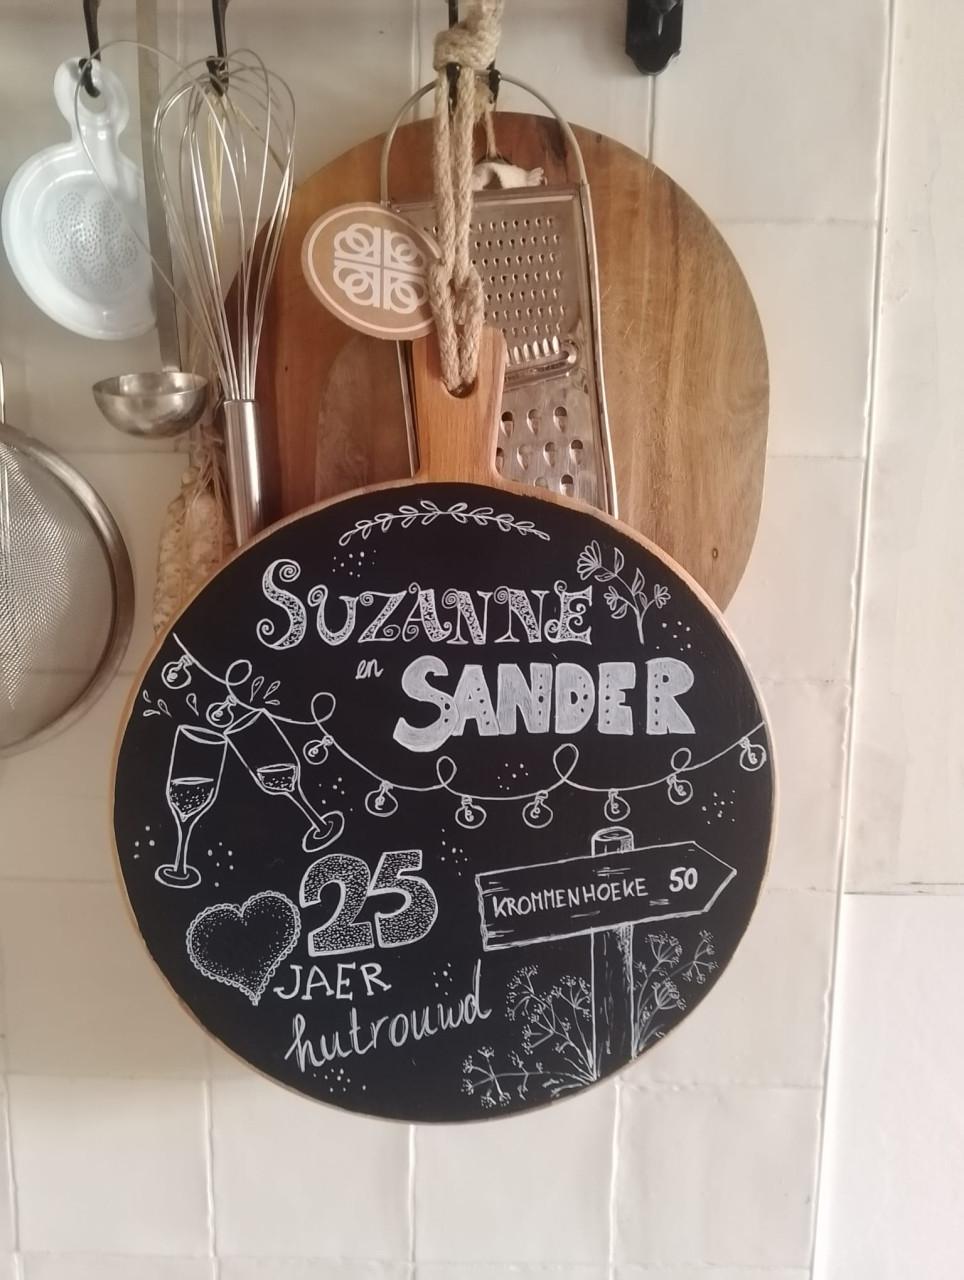 SUZANNE
en
SANDER
25
JAER
hutrouwd
KROMMENHOEKE 50